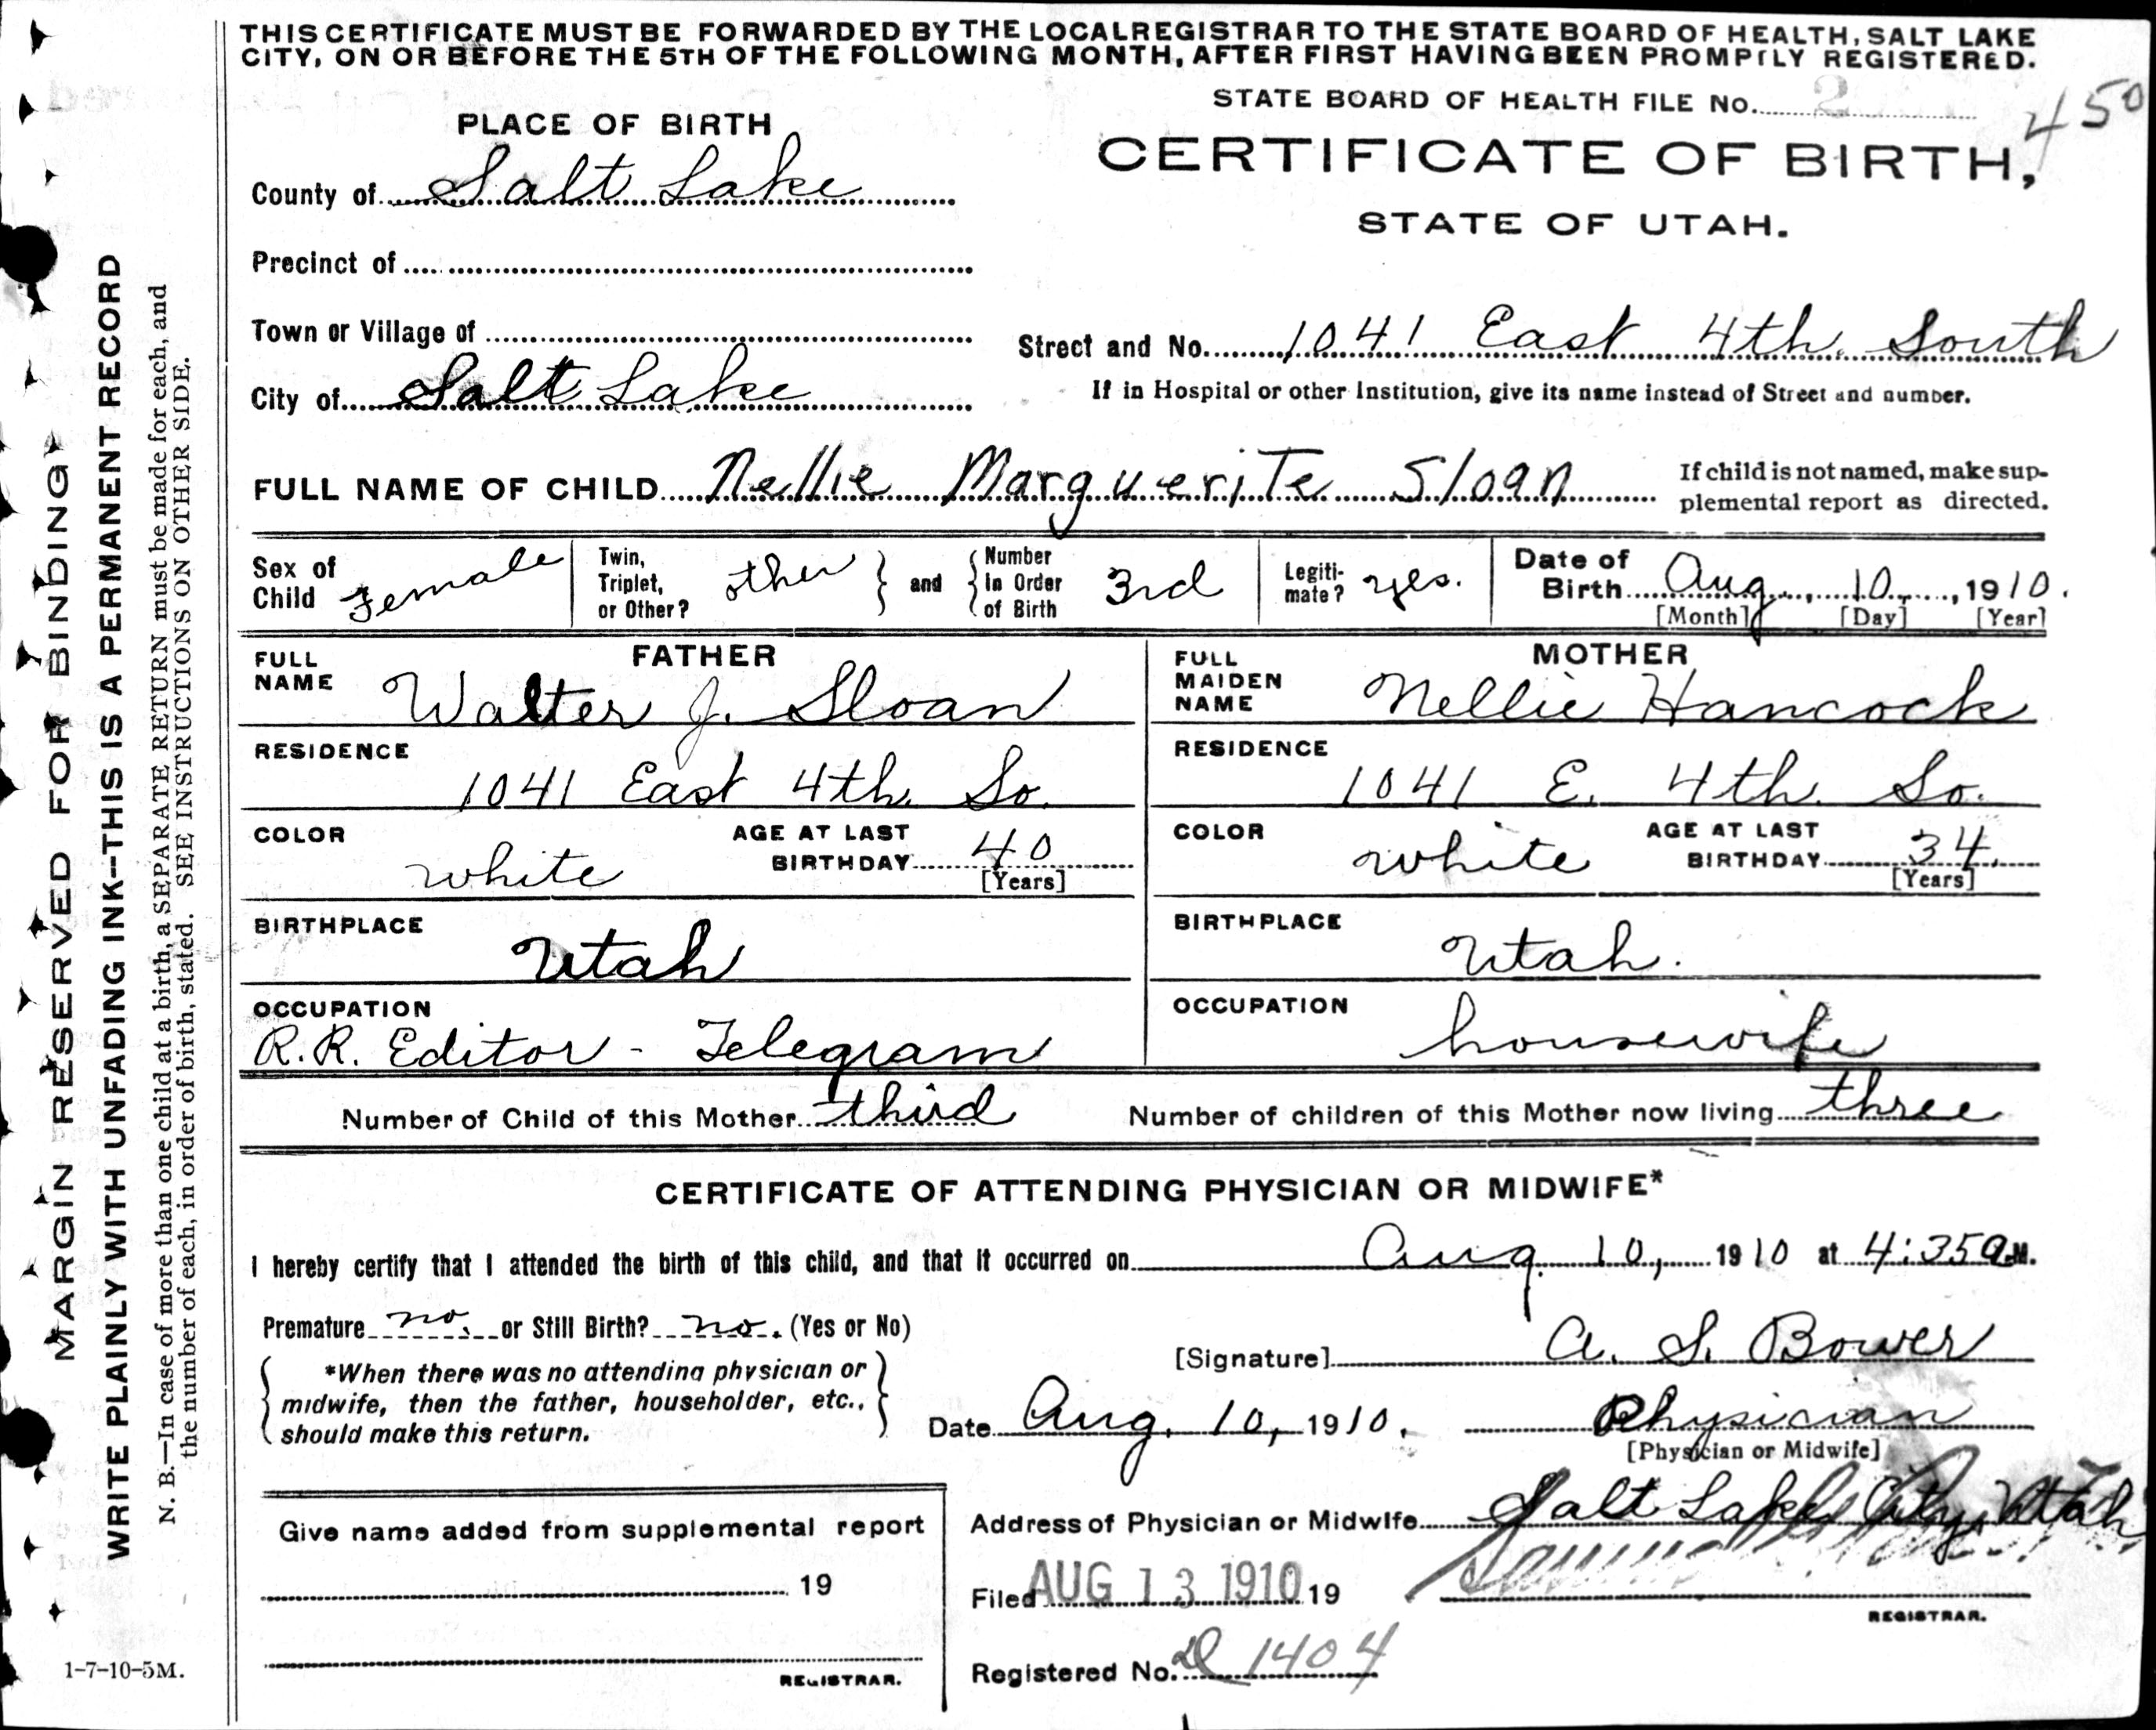 THIS CERTIFICATE MUST BE FORWARDED BY THE LOCAL REGISTRAR TO THE STATE BOARD OF HEALTH, SALT LAKE
CITY, ON OR BEFORE THE 5TH OF THE FOLLOWING MONTH, AFTER FIRST HAVING BEEN PROMPTLY REGISTERED.
STATE BOARD OF HEALTH FILE No. 2 450
PLACE OF BIRTH
CERTIFICATE OF BIRTH,
STATE OF UTAH.
County of Salt Lake
Precinct of
Town or Village of
Street and No. 1041 East 4th. South
City of Salt Lake
If in Hospital or other Institution, give its name instead of Street and number.
FULL NAME OF CHILD Nellie Marguerite Sloan
If child is not named, make sup-
plemental report as directed.
Sex of Child Female
Twin, Triplet, or Other? other
and
Number in Order of Birth 3rd
Legiti-mate? yes.
Date of Birth Aug, 10, 1910.
[Month] [Day] [Year]
FATHER
FULL NAME Walter J. Sloan
RESIDENCE
1041 East 4th. So.
COLOR white
AGE AT LAST BIRTHDAY 40
[Years]
BIRTHPLACE
Utah
OCCUPATION
R.R. Editor - Telegram
MOTHER
FULL MAIDEN NAME Nellie Hancock
RESIDENCE
1041 E. 4th. So.
COLOR white
AGE AT LAST BIRTHDAY 34.
[Years]
BIRTHPLACE
Utah.
OCCUPATION
housewife
Number of Child of this Mother third
Number of children of this Mother now living three
CERTIFICATE OF ATTENDING PHYSICIAN OR MIDWIFE*
I hereby certify that I attended the birth of this child, and that it occurred on Aug. 10, 1910 at 4:35 a.M.
Premature no. or Still Birth? no. (Yes or No)
*When there was no attending physician or
midwife, then the father, householder, etc.,
should make this return.
[Signature] A. S. Bower
Date Aug. 10, 1910.
Physician
[Physician or Midwife]
Address of Physician or Midwife Salt Lake City, Utah
Give name added from supplemental report
19
REGISTRAR.
Filed AUG 13 1910 19
REGISTRAR.
Registered No. 1404
MARGIN RESERVED FOR BINDING
WRITE PLAINLY WITH UNFADING INK--THIS IS A PERMANENT RECORD
N. B.—In case of more than one child at a birth, a SEPARATE RETURN must be made for each, and
the number of each, in order of birth, stated. SEE INSTRUCTIONS ON OTHER SIDE.
1-7-10-5M.